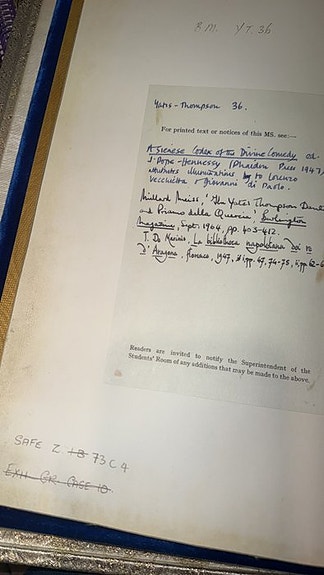 B.M. Y.T. 36
Yates-Thompson 36.
For printed text or notices of this MS. see:—
A Sienese Codex of the Divine Comedy ed.
J. Pope-Hennessy (Phaidon Press 1947)
attributes illuminations to Lorenzo
Vecchietta & Giovanni di Paolo.
Millard Meiss, 'The Yates Thompson Dante
and Priamo della Quercia', Burlington
Magazine, Sept. 1964, pp. 403-412.
T. De Marinis, La biblioteca napoletana dei re
d'Aragona, 1947, pp. 47, 74-75, ii, pp. 62-6
Readers are invited to notify the Superintendent of the
Students' Room of any additions that may be made to the above.
SAFE 2 73 C 4
EXH GR. CASE 10.